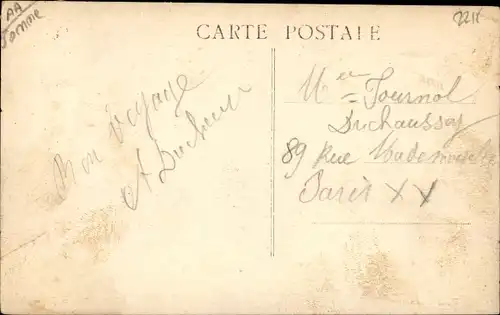 AA
Somme
CARTE POSTALE
2211
Mon voyage
M
Tournol
Duchaussoy
89 Rue Mademoiselle
Paris XX